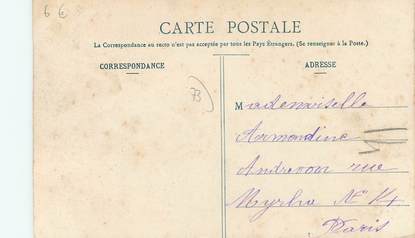 6 €
CARTE POSTALE
La Correspondance au recto n'est pas acceptée par tous les Pays Étrangers. (Se renseigner à la Poste.)
CORRESPONDANCE
ADRESSE
73
Mademoiselle
Armandine
Andrevon rue
Myrha N° 14
Paris